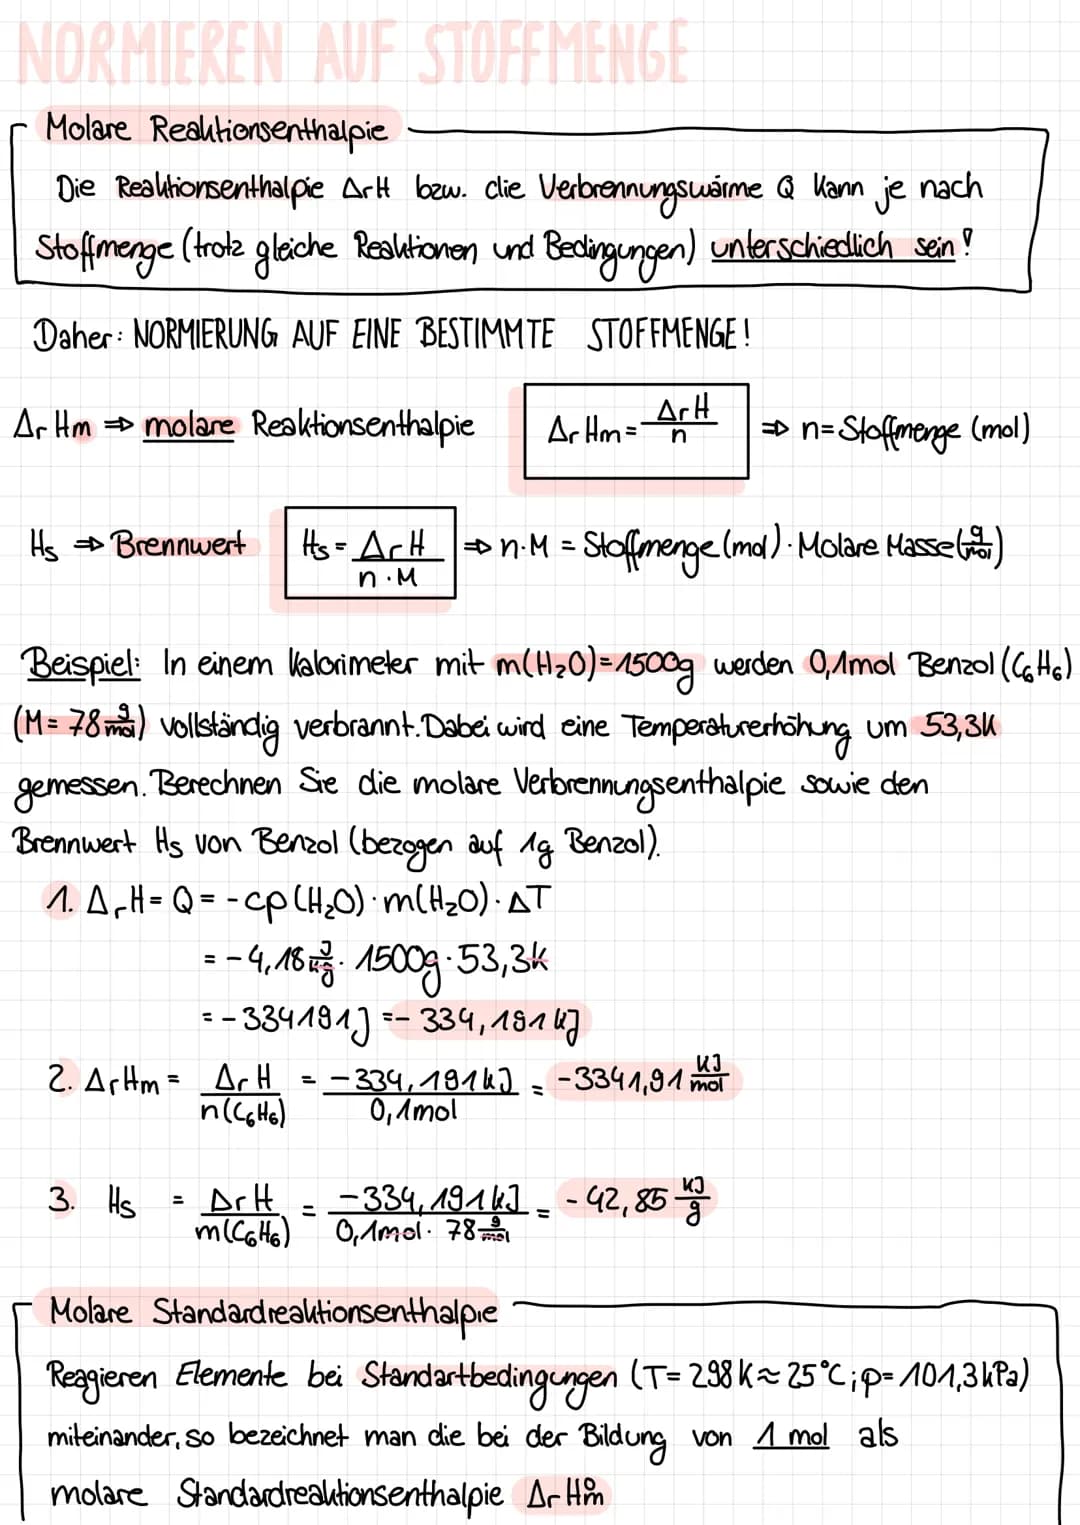 NORMIEREN AUF STOFFMENGE
Molare Reaktionsenthalpie
Die Reaktionsenthalpie ΔrH bzw. die Verbrennungswärme Q kann je nach
Stoffmenge (trotz gleiche Reaktionen und Bedingungen) unterschiedlich sein!
Daher: NORMIERUNG AUF EINE BESTIMMTE STOFFMENGE!
ΔrHm ⇒ molare Reaktionsenthalpie ΔrHm = ΔrH / n ⇒ n = Stoffmenge (mol)
Hs ⇒ Brennwert Hs = ΔrH / n · M ⇒ n · M = Stoffmenge (mol) · Molare Masse (g/mol)
Beispiel: In einem Kalorimeter mit m(H₂O)=1500g werden 0,1mol Benzol (C₆H₆)
(M= 78 g/mol) vollständig verbrannt. Dabei wird eine Temperaturerhöhung um 53,3K
gemessen. Berechnen Sie die molare Verbrennungsenthalpie sowie den
Brennwert Hs von Benzol (bezogen auf 1g Benzol).
1. ΔrH = Q = - cp (H₂O) · m(H₂O) · ΔT
= - 4,18 J/kg · 1500g · 53,3K
= - 334191J = - 334,191 kJ
2. ΔrHm = ΔrH / n(C₆H₆) = -334,191kJ / 0,1mol = -3341,91 kJ/mol
3. Hs = ΔrH / m(C₆H₆) = -334,191kJ / 0,1mol · 78 g/mol = - 42,85 kJ/g
Molare Standardreaktionsenthalpie
Reagieren Elemente bei Standartbedingungen (T= 298K ≈ 25°C; p= 101,3kPa)
miteinander, so bezeichnet man die bei der Bildung von 1 mol als
molare Standardreaktionsenthalpie ΔrH°m